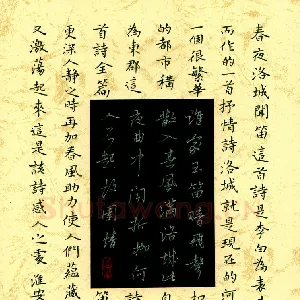 春夜洛城聞笛這首詩是李白為表
而作的一首抒情詩洛城就是現在的河
一個很繁華
的都市稱
為東都這
首詩全篇
更深人静之時再加春風助力使人們蘊藏
又激蕩起來這是該詩感人之處淮安
誰家玉笛暗飛聲
散入春風滿洛城此
夜曲中聞折柳何
人不起故園情